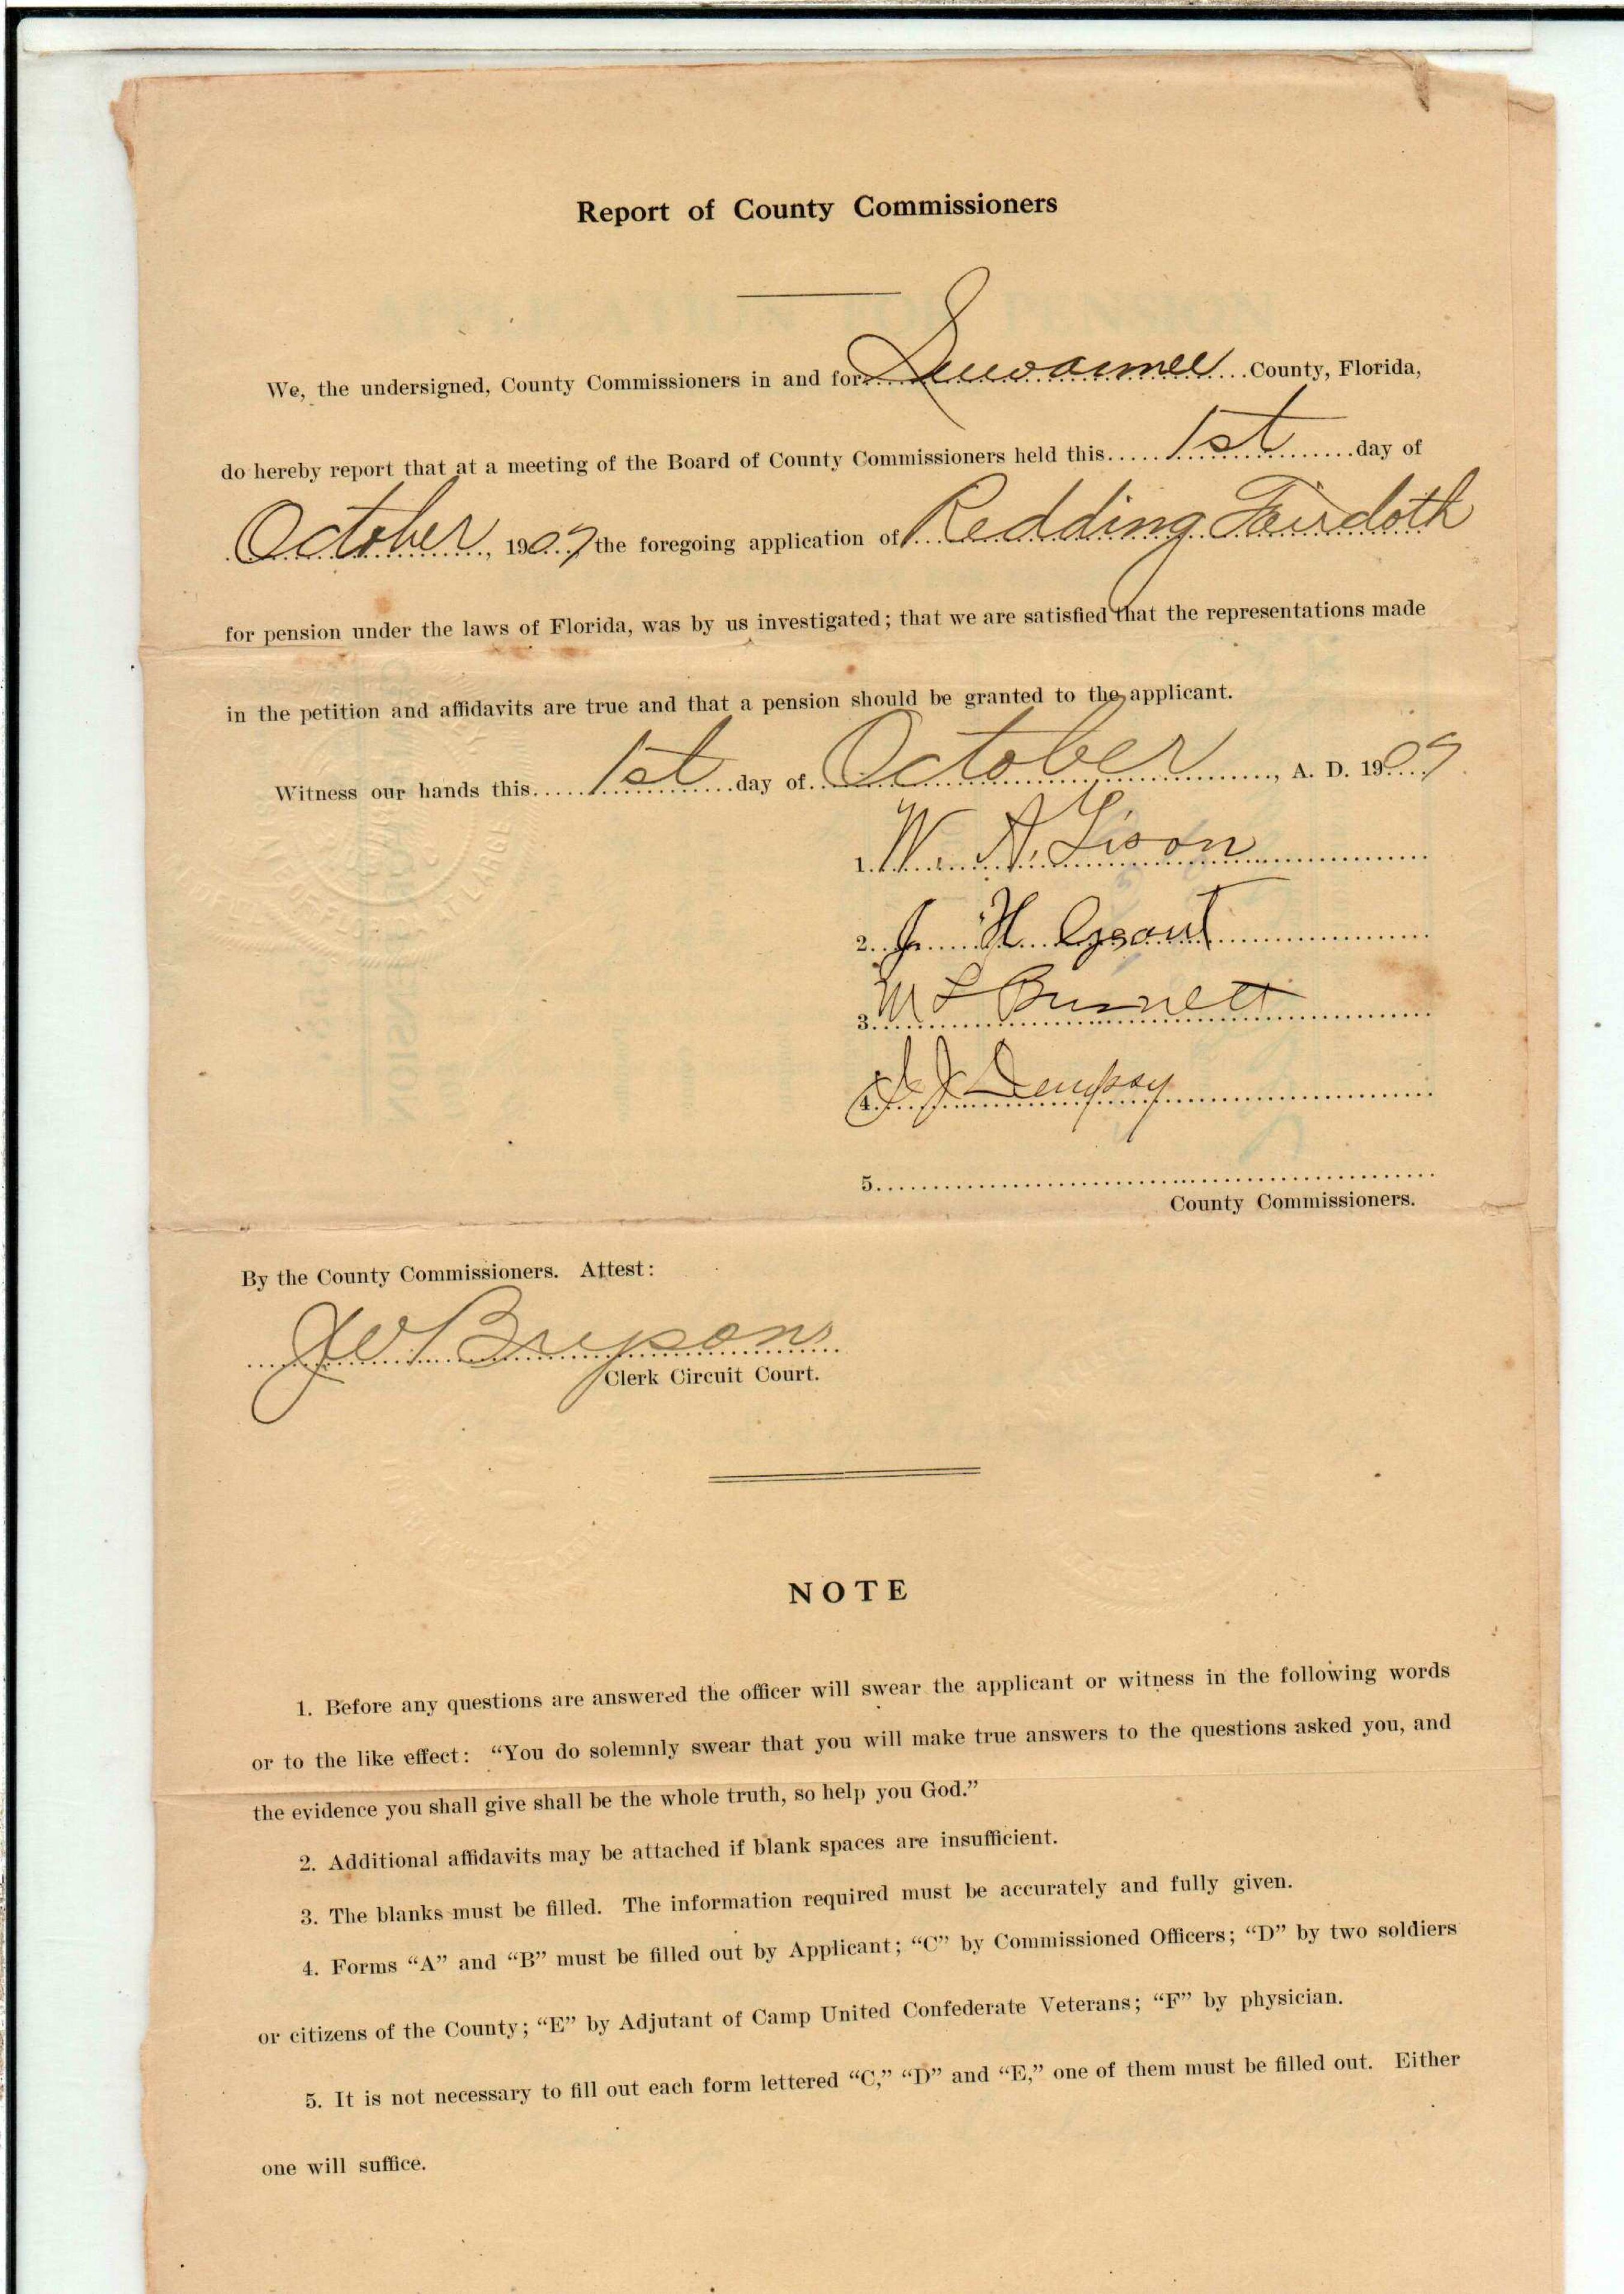 Report of County Commissioners
We, the undersigned, County Commissioners in and for Suwannee County, Florida,
do hereby report that at a meeting of the Board of County Commissioners held this 1st day of
October, 1909 the foregoing application of Redding Fairdoth
for pension under the laws of Florida, was by us investigated; that we are satisfied that the representations made
in the petition and affidavits are true and that a pension should be granted to the applicant.
Witness our hands this 1st day of October, A. D. 1909
1. W. A.
2. J. H.
3. M L Burnett
4. J J Dempsey
5.
County Commissioners.
By the County Commissioners. Attest:
J W Bryson
Clerk Circuit Court.
NOTE
1. Before any questions are answered the officer will swear the applicant or witness in the following words
or to the like effect: “You do solemnly swear that you will make true answers to the questions asked you, and
the evidence you shall give shall be the whole truth, so help you God.”
2. Additional affidavits may be attached if blank spaces are insufficient.
3. The blanks must be filled. The information required must be accurately and fully given.
4. Forms “A” and “B” must be filled out by Applicant; “C” by Commissioned Officers; “D” by two soldiers
or citizens of the County; “E” by Adjutant of Camp United Confederate Veterans; “F” by physician.
5. It is not necessary to fill out each form lettered “C,” “D” and “E,” one of them must be filled out. Either
one will suffice.